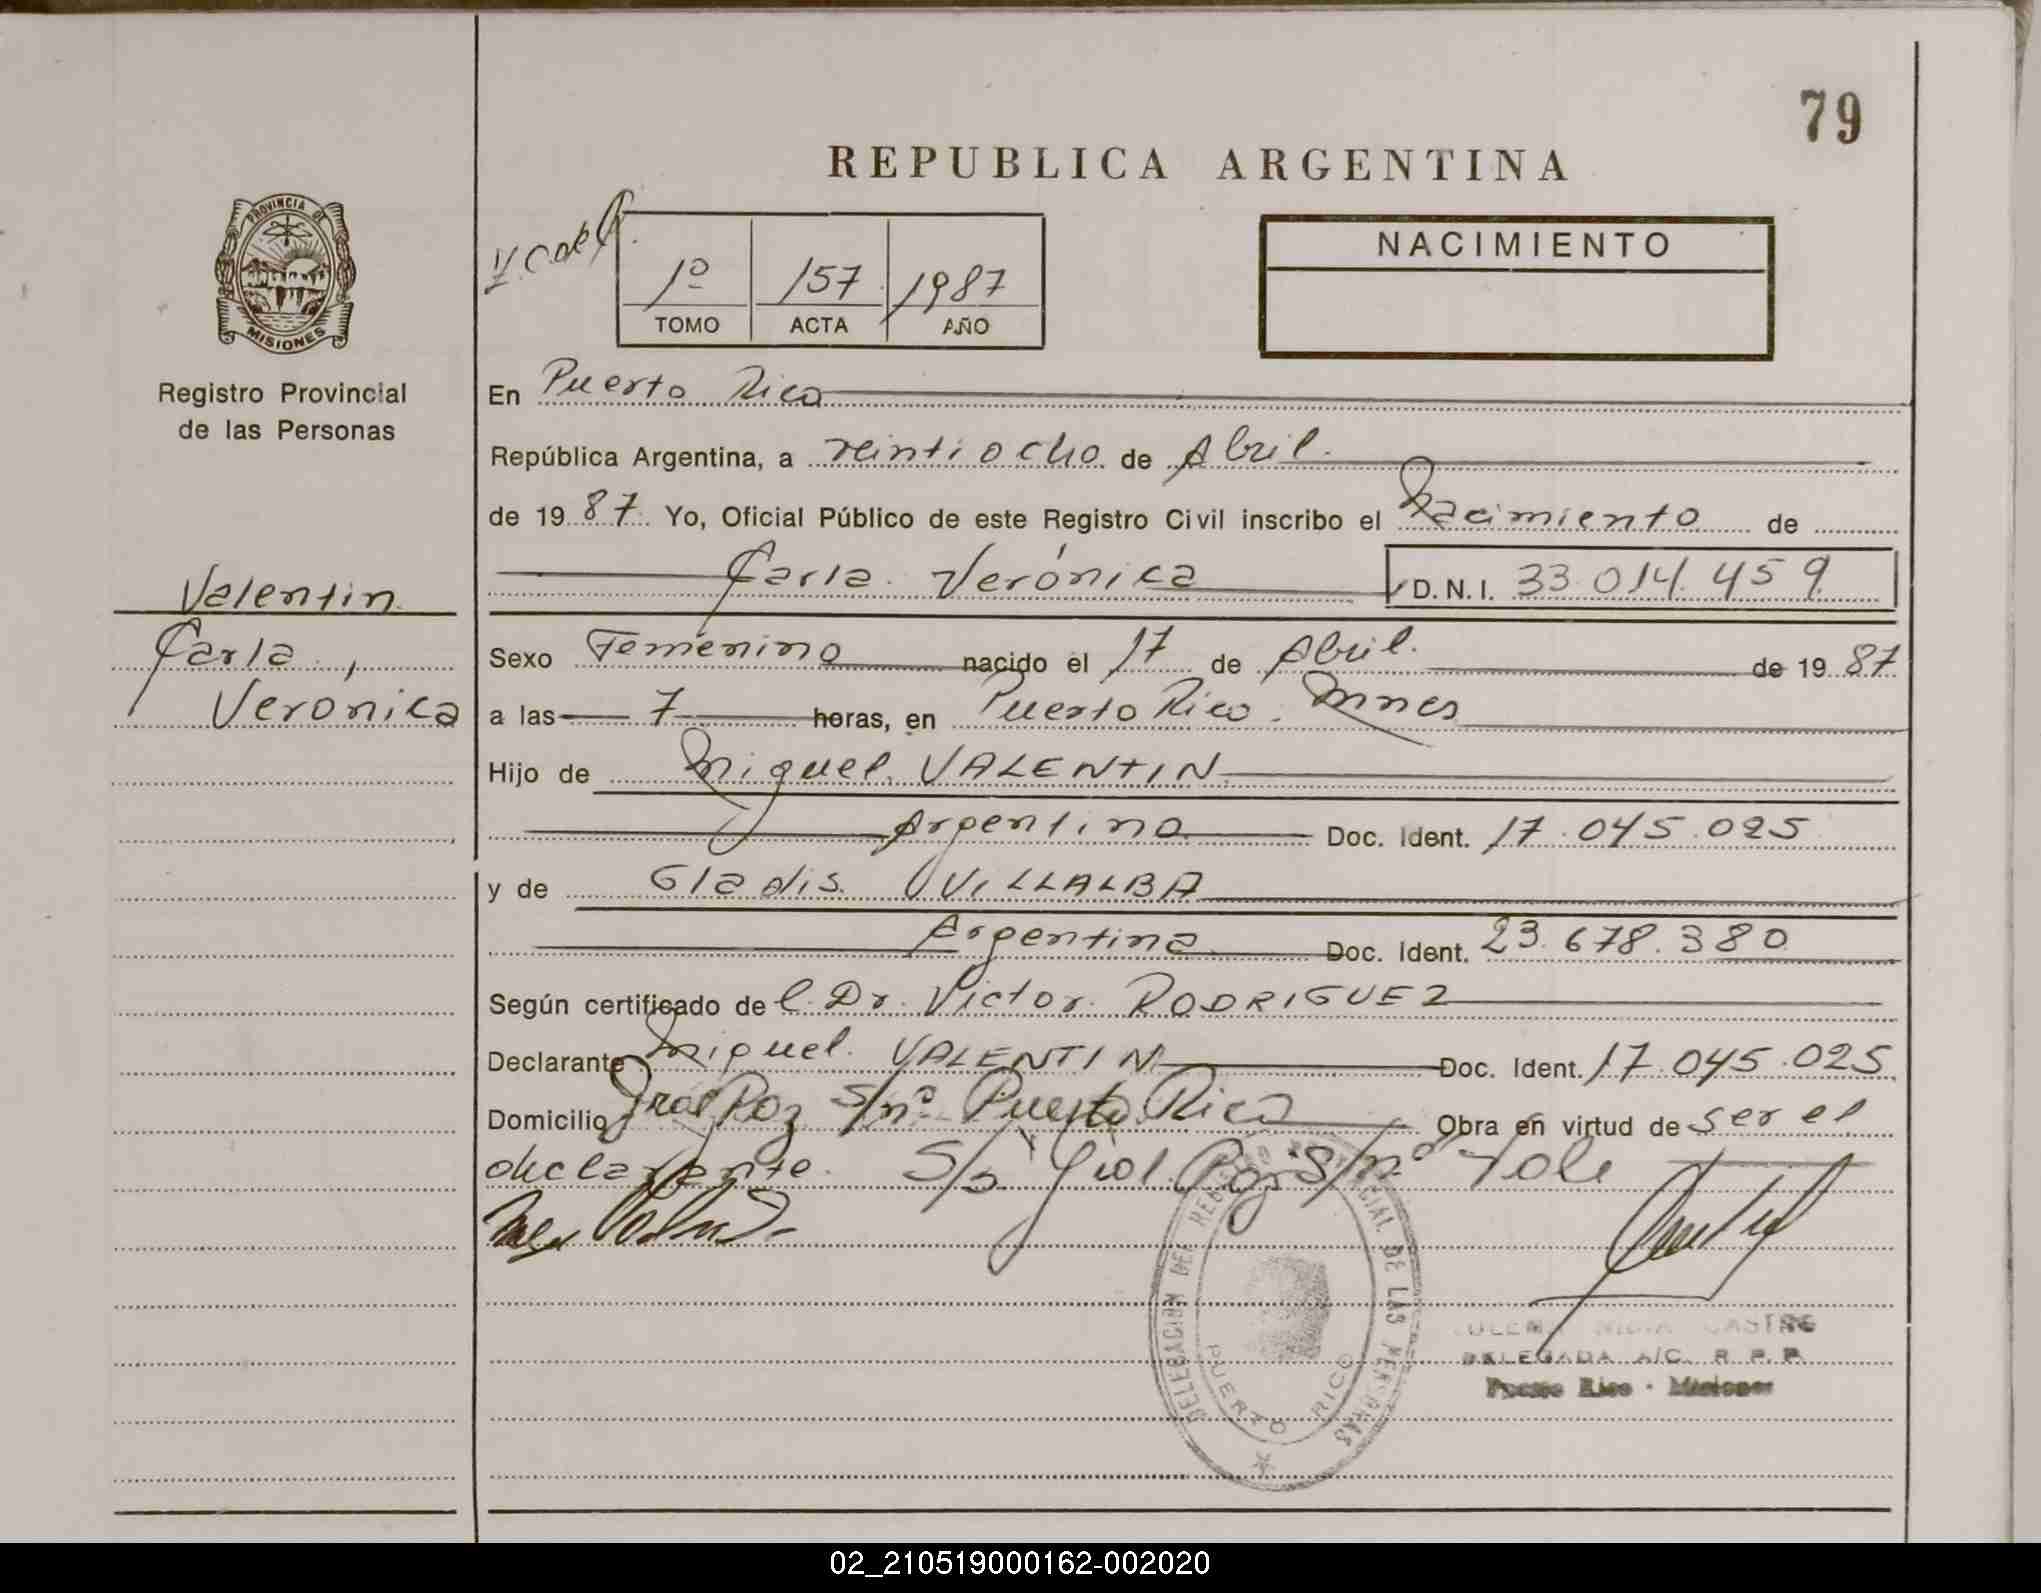 79
REPUBLICA ARGENTINA
PROVINCIA DE
MISIONES
Registro Provincial
de las Personas
1º 157 1987
TOMO ACTA AÑO
NACIMIENTO
En Puerto Rico
República Argentina, a veintiocho de Abril.
de 1987. Yo, Oficial Público de este Registro Civil inscribo el Nacimiento de
Carla Verónica D.N.I. 33.014.459
Valentin
Carla,
Verónica
Sexo Femenino nacido el 17 de Abril. de 1987
a las 7 horas, en Puerto Rico. Mnes
Hijo de Miguel VALENTIN
Argentino Doc. Ident. 17.045.025
y de Gladis VILLALBA
Argentina Doc. Ident. 23.678.380
Según certificado del Dr. Victor RODRIGUEZ
Declarante Miguel VALENTIN Doc. Ident. 17.045.025
Domicilio Gral Roz S/nº Puerto Rico Obra en virtud de ser el
declarante. S/nº Vale
DELEGACION DEL REGISTRO PROVINCIAL DE LAS PERSONAS
PUERTO RICO
CASTRO
DELEGADA A/C. R. P. P.
Puerto Rico - Misiones
02_210519000162-002020